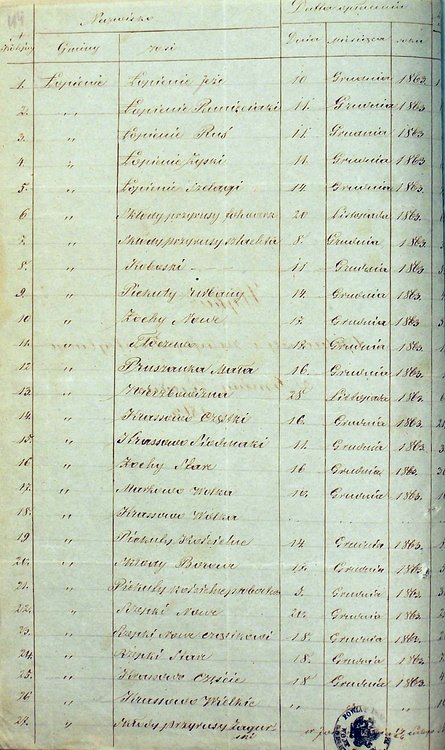 Nazwisko Datta spisania
Gminy wsi Dnia miesiąca roku
1. Łopienie Łopienie Jeże 10 Grudnia 1863
2. „ Łopienie 11. Grudnia 1863
3. „ Łopienie Ruś 11. Grudnia 1863.
4. „ Łopienie Zyski 11. Grudnia 1863.
5. „ Łopienie Szelągi 14. Grudnia 1863.
6 „ Skłody przyrusy 20 Listopada 1863.
7. „ Skłody przyrusy szlachta 8. Grudnia 1863.
8. „ Koboski 11 Grudnia 1863.
9. „ Piekuty Urbany 14. Grudnia 1863.
10 „ Żochy Nowe 17. Grudnia 1863.
11 „ Grudnia 1863.
12 „ Pruszanka Mała 16. Grudnia 1863.
13. „ Wierzbowizna 28. Listopada 1863.
14. „ Krassowo Częstki 16. Grudnia 1863.
15. „ Krassowo Siodmaki 11. Grudnia 1863.
16 „ Żochy Stare 16 Grudnia 1863.
17. „ Markowo Wolka 10. Grudnia 1863.
18. „ Krassowo Wolka „ „ „
19 „ Piekuty Kościelne 14. Grudnia 1863.
20. „ Skłody Borowe Grudnia 1863
21. „ Piekuty kościelne probostwo 3. Grudnia 1863.
22. „ Rzepki Nowe 20. Grudnia 1863
23. „ Rzepki Nowe 18. Grudnia 1863.
24. „ Rzepki Stare 18. Grudnia 1863.
25. „ Krassowo Częście 18 Grudnia 1863.
26 „ Krassowo Wielkie „ „ „
27. „ Skłody przyrusy